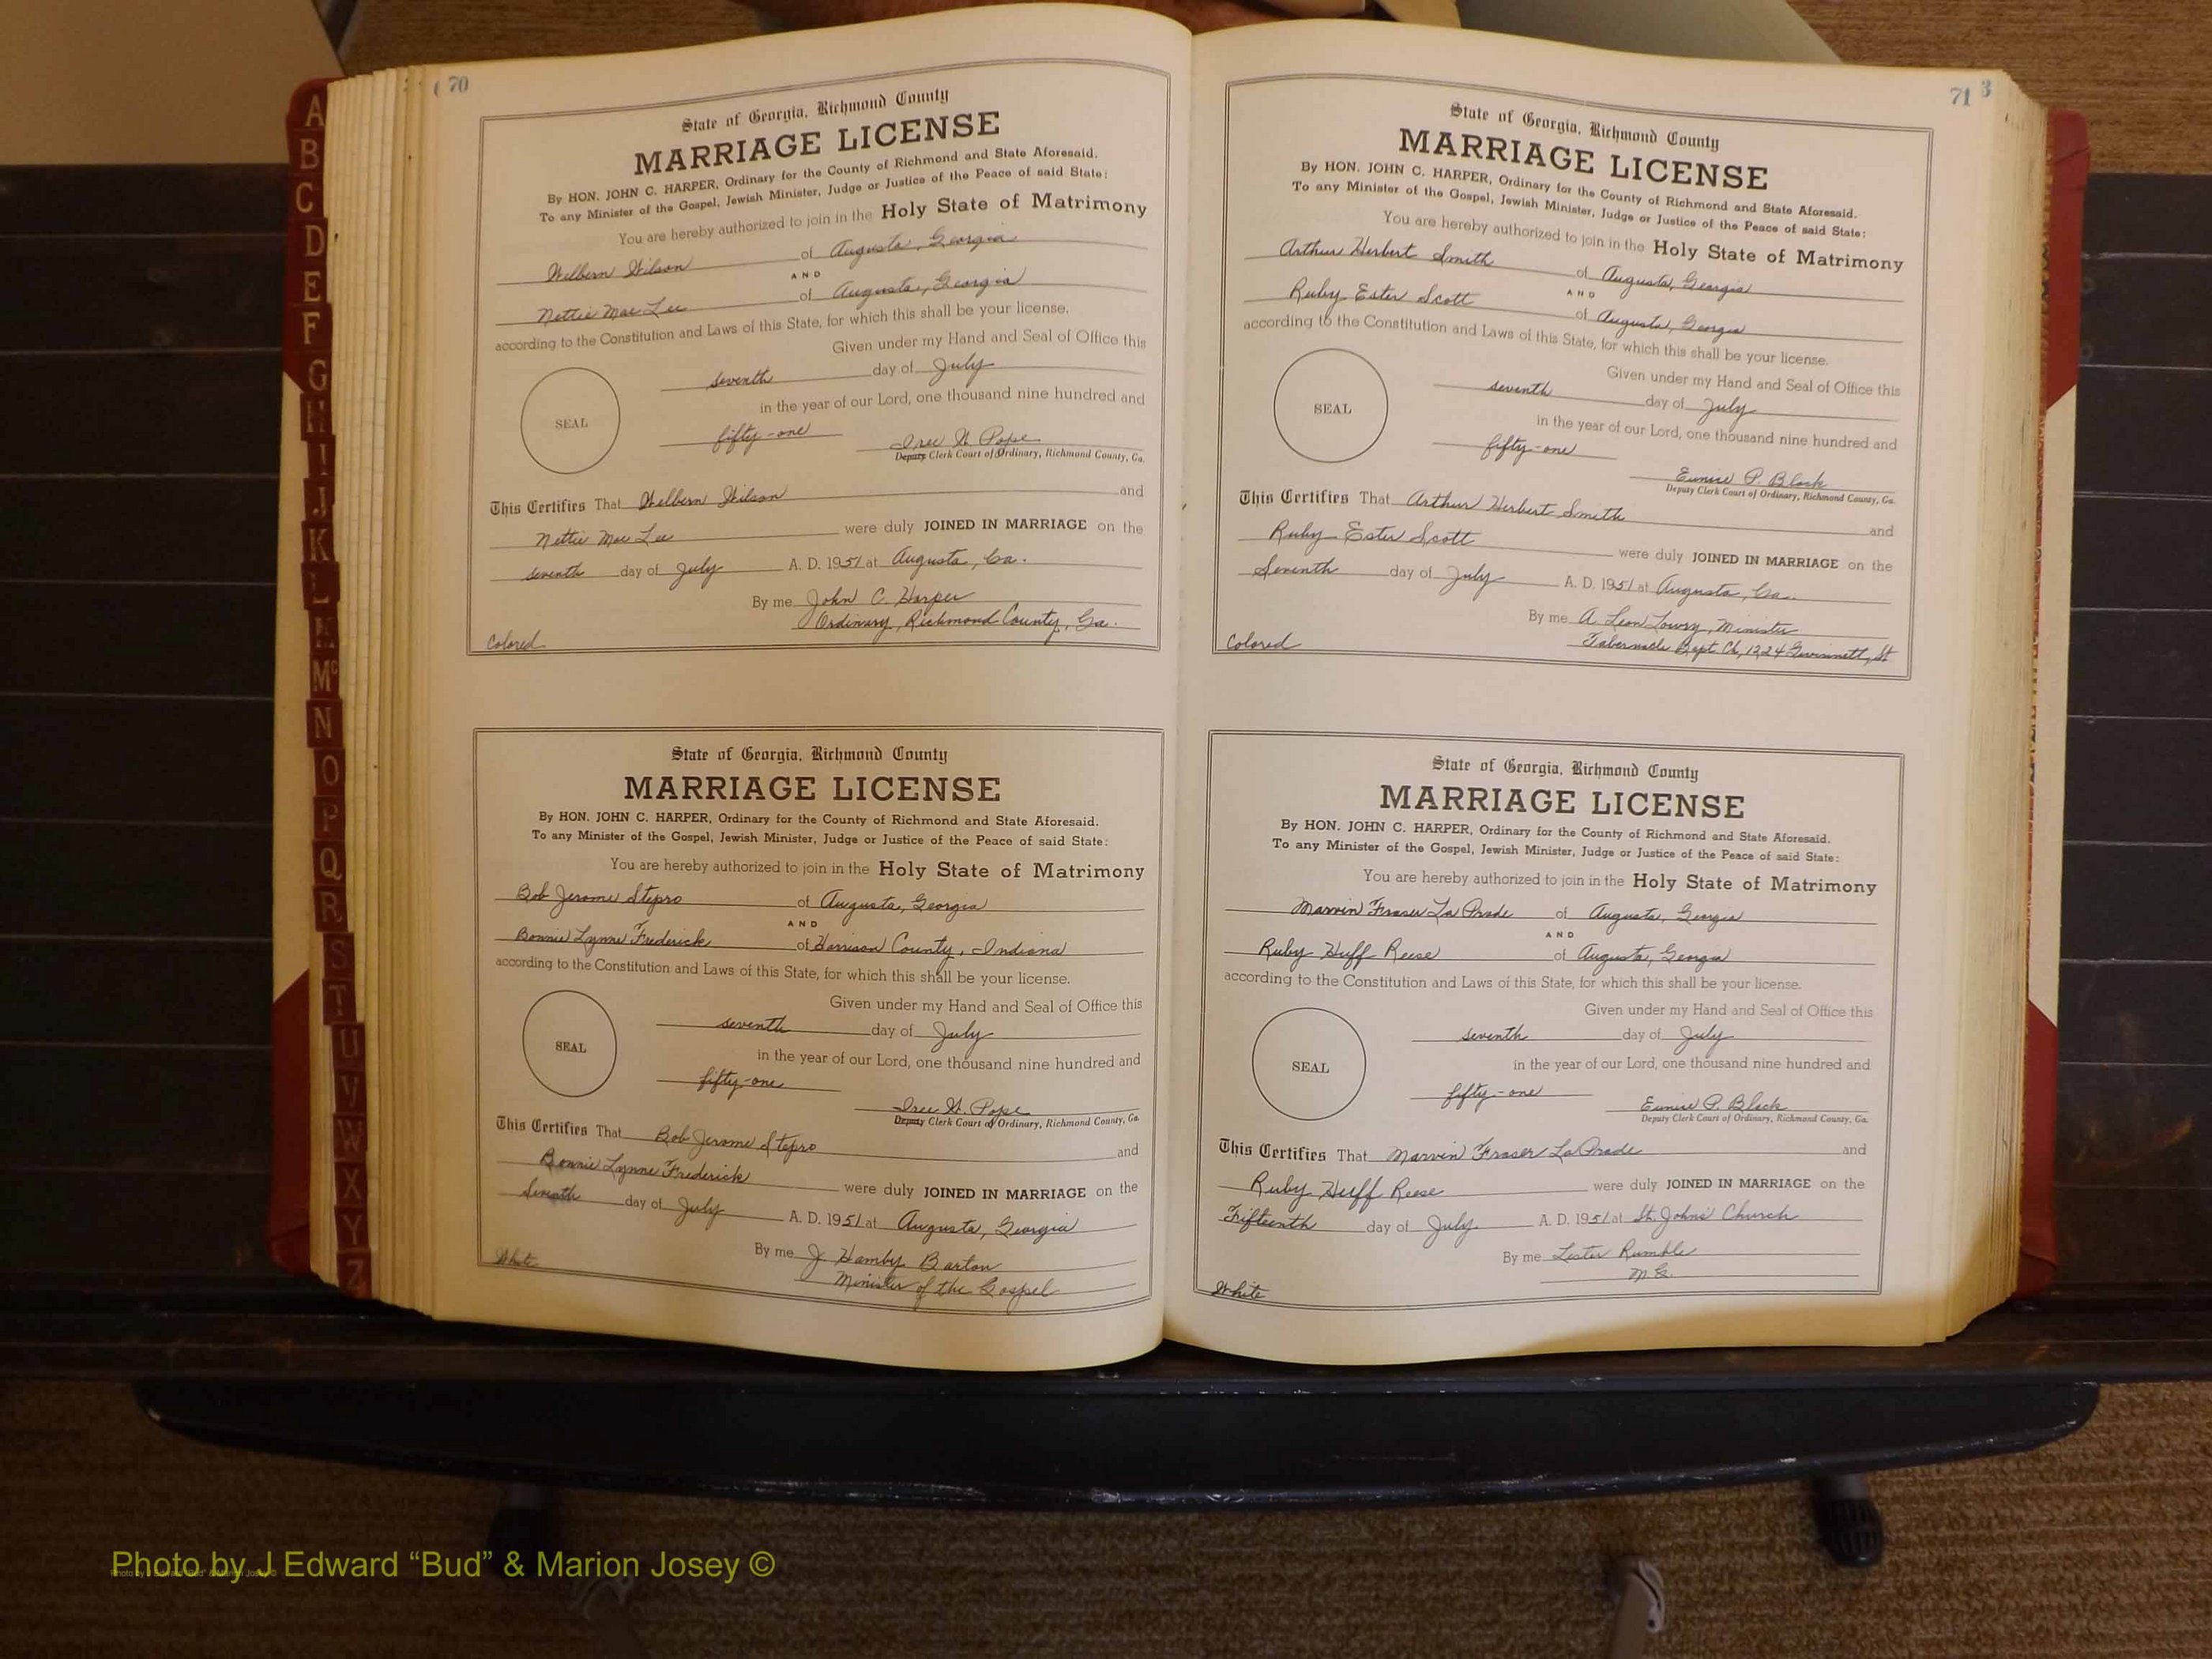 70
State of Georgia, Richmond County
MARRIAGE LICENSE
By HON. JOHN C. HARPER, Ordinary for the County of Richmond and State Aforesaid.
To any Minister of the Gospel, Jewish Minister, Judge or Justice of the Peace of said State:
You are hereby authorized to join in the Holy State of Matrimony
Welbern Wilson of Augusta, Georgia
AND
Nettie Mae Lee of Augusta, Georgia
according to the Constitution and Laws of this State, for which this shall be your license.
Given under my Hand and Seal of Office this
seventh day of July
in the year of our Lord, one thousand nine hundred and
SEAL
fifty-one
H. Pope
Deputy Clerk Court of Ordinary, Richmond County, Ga.
This Certifies That Welbern Wilson and
Nettie Mae Lee were duly JOINED IN MARRIAGE on the
seventh day of July A. D. 1951 at Augusta, Ga.
By me John C. Harper
Ordinary, Richmond County, Ga.
Colored
State of Georgia, Richmond County
MARRIAGE LICENSE
By HON. JOHN C. HARPER, Ordinary for the County of Richmond and State Aforesaid.
To any Minister of the Gospel, Jewish Minister, Judge or Justice of the Peace of said State:
You are hereby authorized to join in the Holy State of Matrimony
Bob Jerome Stepro of Augusta, Georgia
AND
Bonnie Lynne Frederick of Harrison County, Indiana
according to the Constitution and Laws of this State, for which this shall be your license.
Given under my Hand and Seal of Office this
seventh day of July
in the year of our Lord, one thousand nine hundred and
SEAL
fifty-one
H. Pope
Deputy Clerk Court of Ordinary, Richmond County, Ga.
This Certifies That Bob Jerome Stepro and
Bonnie Lynne Frederick were duly JOINED IN MARRIAGE on the
Seventh day of July A. D. 1951 at Augusta, Georgia
By me J. Hamby Barton
Minister of the Gospel
White
71
3
State of Georgia, Richmond County
MARRIAGE LICENSE
By HON. JOHN C. HARPER, Ordinary for the County of Richmond and State Aforesaid.
To any Minister of the Gospel, Jewish Minister, Judge or Justice of the Peace of said State:
You are hereby authorized to join in the Holy State of Matrimony
Arthur Herbert Smith of Augusta, Georgia
AND
Ruby Ester Scott of Augusta, Georgia
according to the Constitution and Laws of this State, for which this shall be your license.
Given under my Hand and Seal of Office this
seventh day of July
in the year of our Lord, one thousand nine hundred and
SEAL
fifty-one
Eunice P. Block
Deputy Clerk Court of Ordinary, Richmond County, Ga.
This Certifies That Arthur Herbert Smith and
Ruby Ester Scott were duly JOINED IN MARRIAGE on the
Seventh day of July A. D. 1951 at Augusta, Ga.
By me A. Leon Lowry, Minister
Tabernacle Bapt Ch, 1224 Gwinnett, St
Colored
State of Georgia, Richmond County
MARRIAGE LICENSE
By HON. JOHN C. HARPER, Ordinary for the County of Richmond and State Aforesaid.
To any Minister of the Gospel, Jewish Minister, Judge or Justice of the Peace of said State:
You are hereby authorized to join in the Holy State of Matrimony
Marvin Fraser La Prade of Augusta, Georgia
AND
Ruby Huff Reese of Augusta, Georgia
according to the Constitution and Laws of this State, for which this shall be your license.
Given under my Hand and Seal of Office this
seventh day of July
in the year of our Lord, one thousand nine hundred and
SEAL
fifty-one
Eunice P. Block
Deputy Clerk Court of Ordinary, Richmond County, Ga.
This Certifies That Marvin Fraser La Prade and
Ruby Huff Reese were duly JOINED IN MARRIAGE on the
Fifteenth day of July A. D. 1951 at St. Johns' Church
By me Lester Rumble
M. G.
White
A
B
C
D
E
F
G
H
I
J
K
L
M
Mc
N
O
P
Q
R
S
T
U
V
W
X
Y
Z
Photo by J Edward “Bud” & Marion Josey ©
Photo by J Edward “Bud” & Marion Josey ©